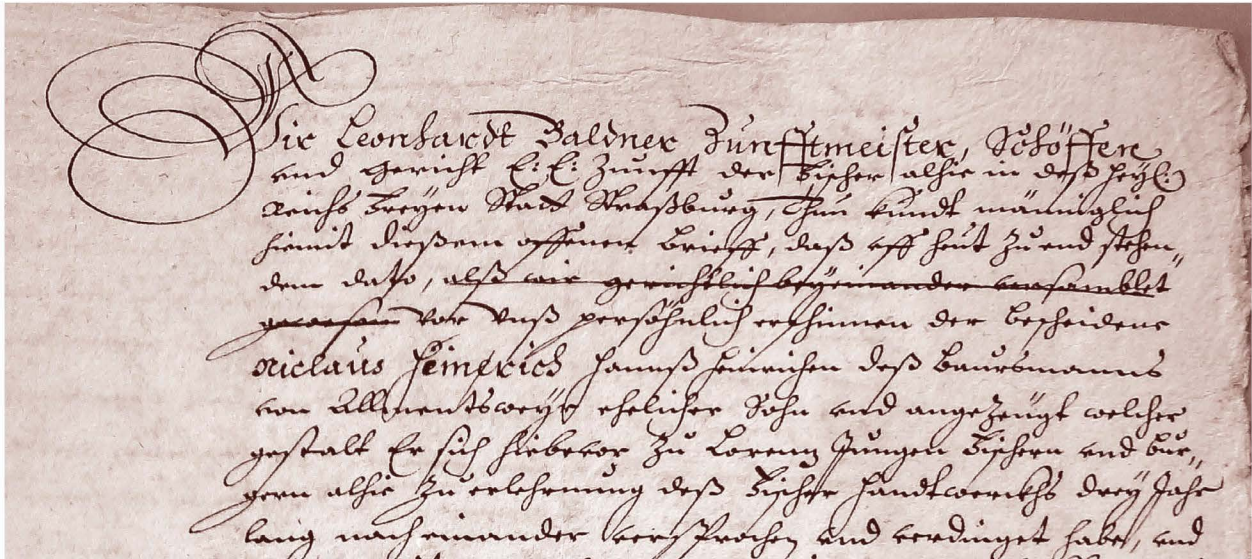 Wir Leonhardt Baldner Zunfftmeister, Schöffen
vnd Gericht E: E: Zunfft der Vischer alhie in deß heyl:
Reichs Freyen Statt Straßburg, Thun kundt männiglich
hiemit dießem offenen brieff, daß vff heut zu end stehen„
dem dato, alß wir gerichtlich beyeinander versamblet
gewesen vor vnß persöhnlich erschinnen der bescheidene
Niclaus Heinrich Hannß Heinrichen deß baursmanns
von Allmentsweyr ehelicher Sohn vnd angezeügt welcher
gestalt Er sich hiebevor zu Lorentz Jungen Vischern vnd bur„
gern alhie zu erlehrnung deß Vischer handtwerckhs drey Jahr
lang nach einander versprochen vnd verdinget habe, vnd